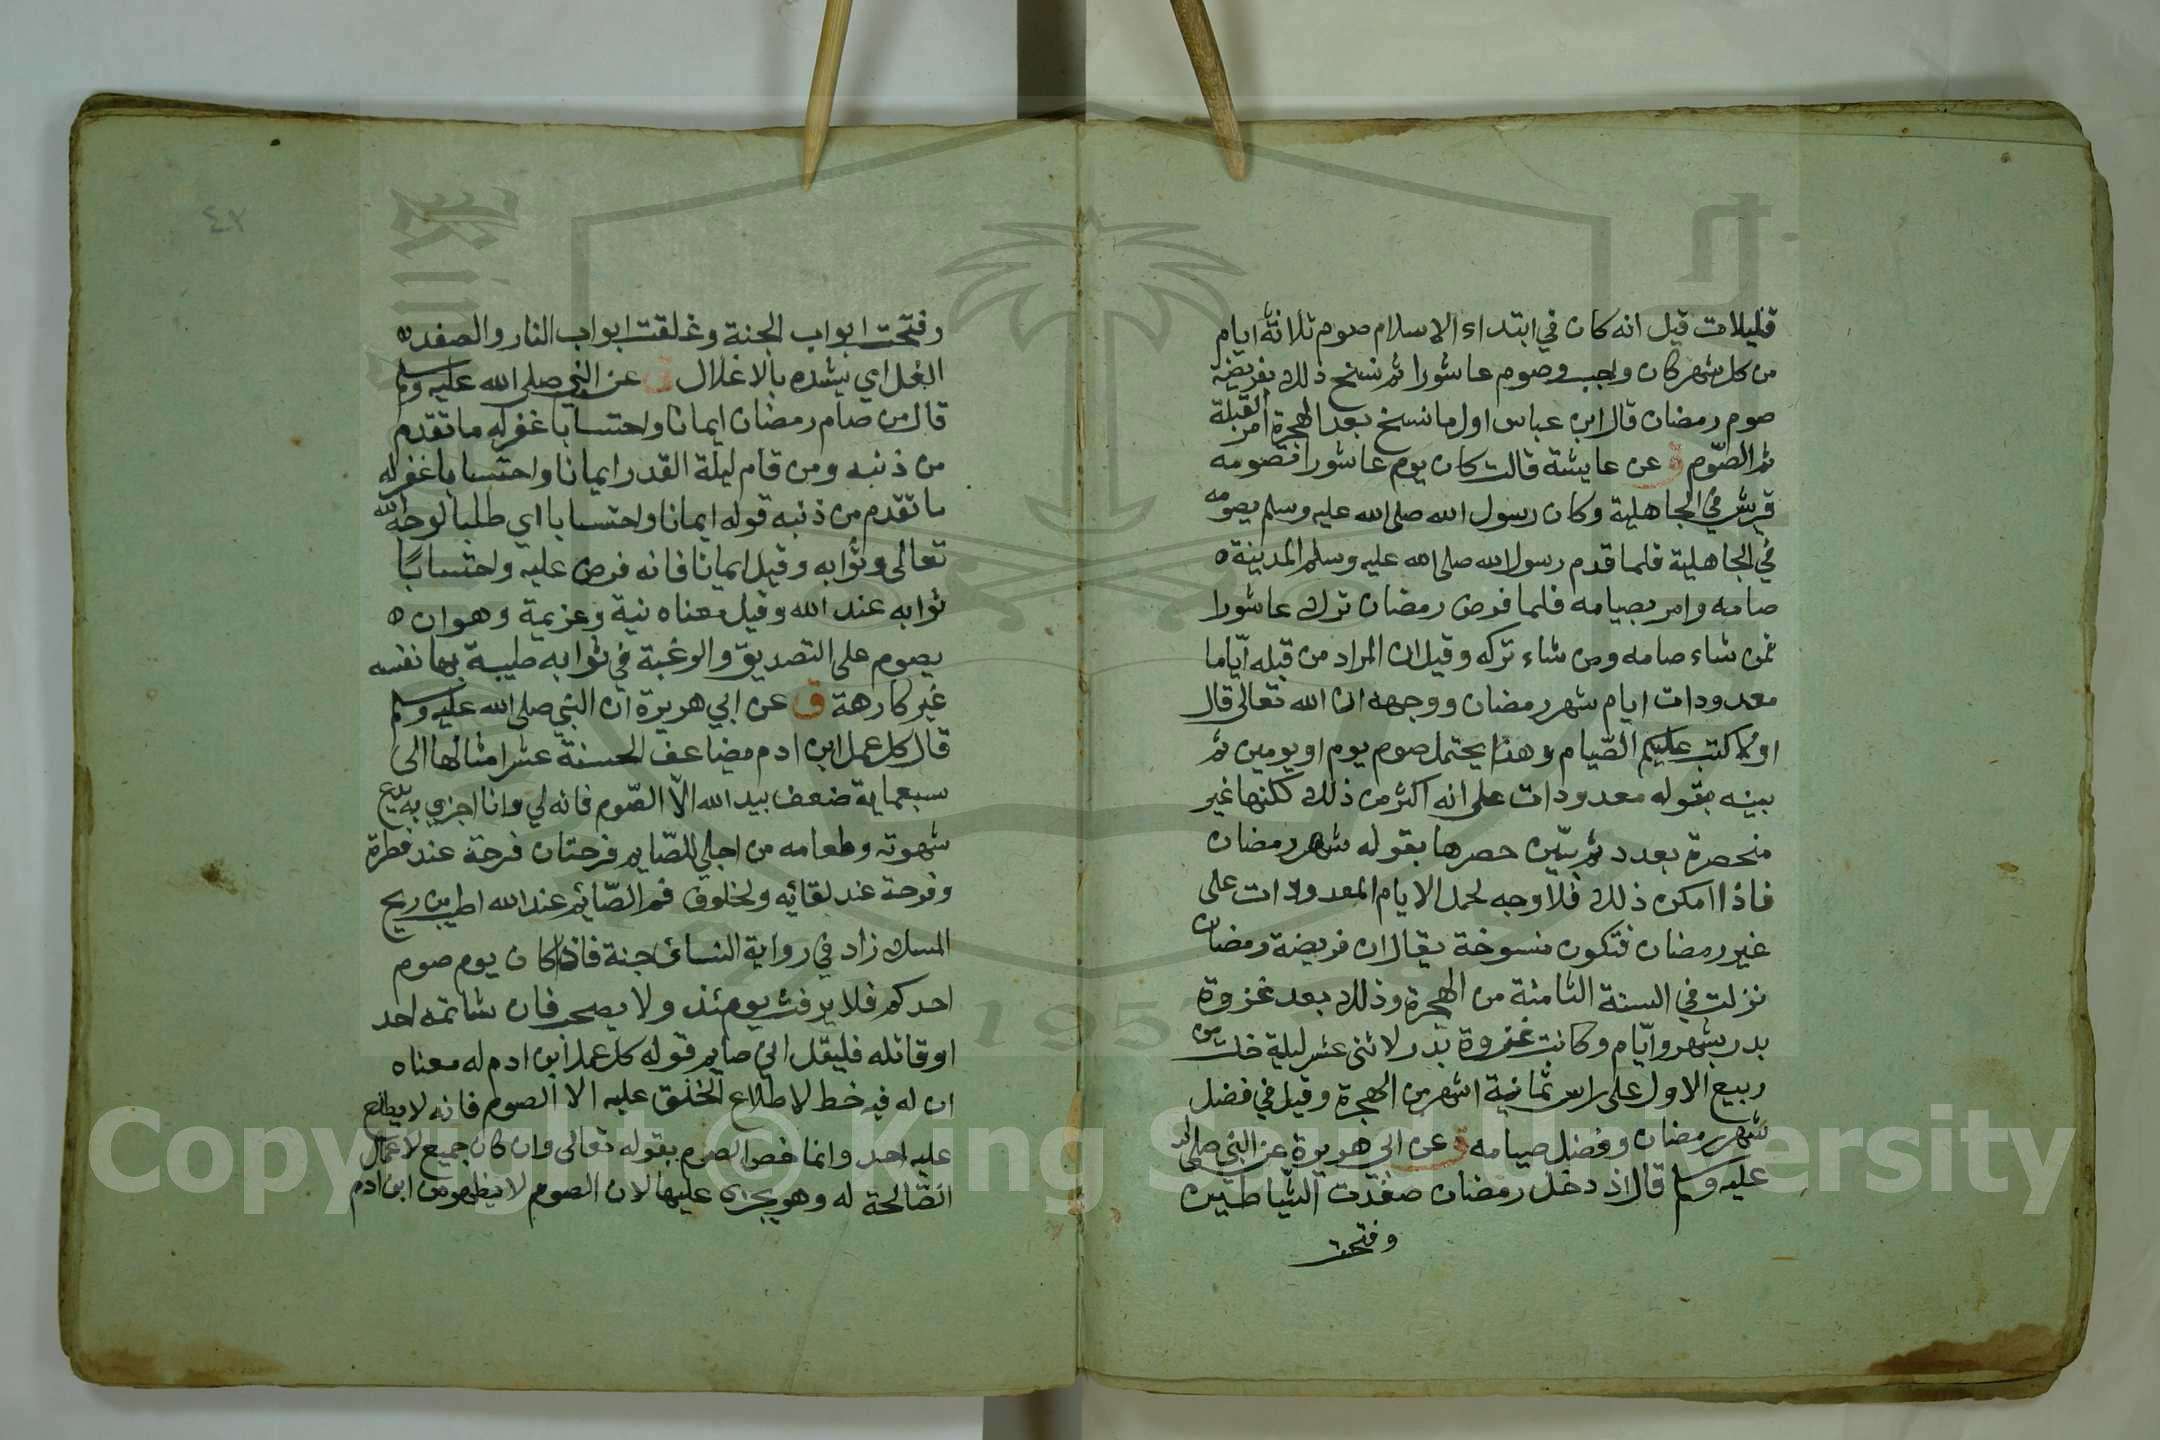 قليلات قيل انه كان في ابتداء الاسلام صوم ثلاثة ايام
من كل شهر كان واجب وصوم عاشورا ثم نسخ ذلك بفريضة
صوم رمضان قال ابن عباس اول ما نسخ بعد الهجرة امر القبلة
ثم الصّوم ق عن عايشة قالت كان يوم عاشورا تصومه
قريش في الجاهلية وكان رسول الله صلى الله عليه وسلم يصومه
في الجاهلية فلما قدم رسول الله صلى الله عليه وسلم المدينة ه
صامه وامر بصيامه فلما فرض رمضان ترك عاشورا
فمن شاء صامه ومن شاء تركه وقيل ان المراد من قبله ايّاما
معدودات ايام شهر رمضان ووجهه ان الله تعالى قال
اولا كتب عليكم الصّيام وهذا يحتمل صوم يوم او يومين ثم
بينه بقوله معدودات على انه اكثر من ذلك لكنها غير
منحصرة بعدد ثم بيّن حصرها بقوله شهر رمضان
فاذا امكن ذلك فلا وجه لحمل الايام المعدودات على
غير رمضان فتكون منسوخة يقال ان فريضة رمضان
نزلت في السنة الثامنة من الهجرة وذلك بعد غزوة
بدر بشهر وايّام وكانت غزوة بدر لاثنى عشر ليلة خلت من
ربيع الاول على راس ثمانية اشهر من الهجرة وقيل في فضل
شهر رمضان وفضل صيامه ق عن ابي هريرة عن النبي صلى الله
عليه وسلم قال اذ دخل رمضان صفدت الشياطين
وفتحت
٤٧
وفتحت ابواب الجنة وغلقت ابواب النار والصفد ه
الغل اي يشده بالاغلال ق عن النبي صلى الله عليه وسلم
قال من صام رمضان ايمانا واحتسابا غفر له ما تقدم
من ذنبه ومن قام ليلة القدر ايمانا واحتسابا غفر له
ما تقدم من ذنبه قوله ايمانا واحتسابا اي طلبا لوجه الله
تعالى وثوابه وقيل ايمانا فانه فرض عليه واحتسابًا
ثوابه عند الله وقيل معناه نية وعزيمة وهو ان ه
يصوم على التصديق والرغبة في ثوابه طيبة بها نفسه
غير كارهة ق عن ابي هريرة ان النبي صلى الله عليه وسلم
قال كل عمل ابن ادم مضاعف الحسنة عشر امثالها الى
سبعماية ضعف بيد الله الّا الصّوم فانه لي وانا اجزي به يدع
شهوته وطعامه من اجلي للصّايم فرحتان فرحة عند فطرة
وفرحة عند لقائه ولخلوف فم الصّائم عند الله اطيب من ريح
المسك زاد في رواية النسائى جنة فاذا كان يوم صوم
احدكم فلا يرفث يومئذ ولا يصخر فان شاتمه احد
او قاتله فليقل اني صايم قوله كل عمل ابن ادم له معناه
ان له فيه خط لاطلاع الخلق عليه الا الصوم فانه لا يطلع
عليه احد وانما خص الصوم بقوله تعالى وان كان جميع لاعمال
الصّالحة له وهو يجزى عليها لان الصوم لا يظهر من ابن ادم
Copyright © King Saud University
1957